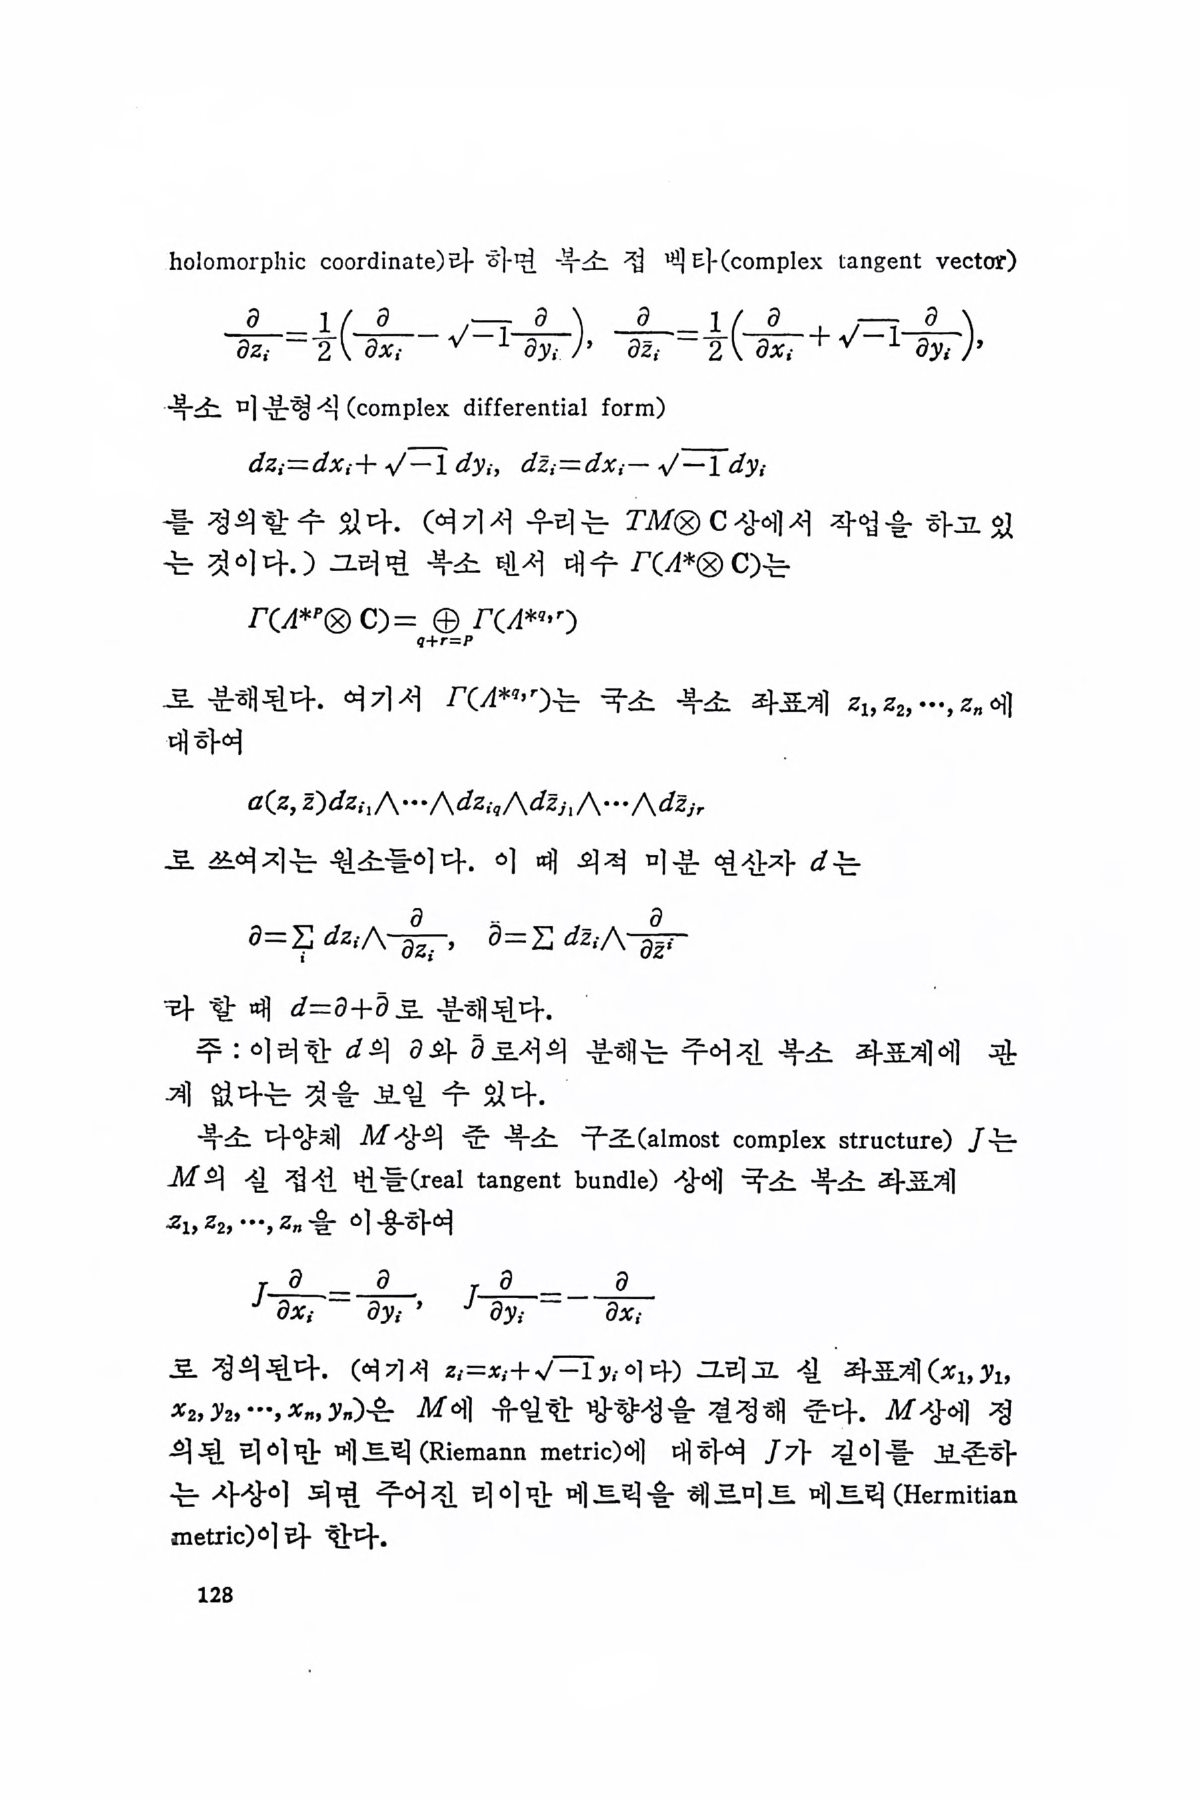 holomorphic coordinate)라 하면 복소 접 벡타(complex tangent vector)
∂/∂zᵢ = 1/2(∂/∂xᵢ − √−1 ∂/∂yᵢ), ∂/∂z̄ᵢ = 1/2(∂/∂xᵢ + √−1 ∂/∂yᵢ),
복소 미분형식(complex differential form)
dzᵢ=dxᵢ+√−1 dyᵢ, dz̄ᵢ=dxᵢ−√−1 dyᵢ
를 정의할 수 있다. (여기서 우리는 TM⊗C상에서 작업을 하고 있
는 것이다.) 그러면 복소 텐서 대수 Γ(Λ*⊗C)는
Γ(Λ*ᴾ⊗C)= ⊕_{q+r=P} Γ(Λ*^{q,r})
로 분해된다. 여기서 Γ(Λ*^{q,r})는 국소 복소 좌표계 z₁, z₂, ⋯, zₙ에
대하여
a(z, z̄)dz_{i₁}∧⋯∧dz_{iq}∧dz̄_{j₁}∧⋯∧dz̄_{jr}
로 쓰여지는 원소들이다. 이 때 외적 미분 연산자 d는
∂=∑ᵢ dzᵢ∧∂/∂zᵢ, ∂̄=∑ dz̄ᵢ∧∂/∂z̄ⁱ
라 할 때 d=∂+∂̄로 분해된다.
주 : 이러한 d의 ∂와 ∂̄로서의 분해는 주어진 복소 좌표계에 관
계 없다는 것을 보일 수 있다.
복소 다양체 M상의 준 복소 구조(almost complex structure) J는
M의 실 접선 번들(real tangent bundle) 상에 국소 복소 좌표계
z₁, z₂, ⋯, zₙ을 이용하여
J ∂/∂xᵢ = ∂/∂yᵢ, J ∂/∂yᵢ = − ∂/∂xᵢ
로 정의된다. (여기서 zᵢ=xᵢ+√−1 yᵢ이다) 그리고 실 좌표계(x₁, y₁,
x₂, y₂, ⋯, xₙ, yₙ)은 M에 유일한 방향성을 결정해 준다. M상에 정
의된 리이만 메트릭(Riemann metric)에 대하여 J가 길이를 보존하
는 사상이 되면 주어진 리이만 메트릭을 헤르미트 메트릭(Hermitian
metric)이라 한다.
128